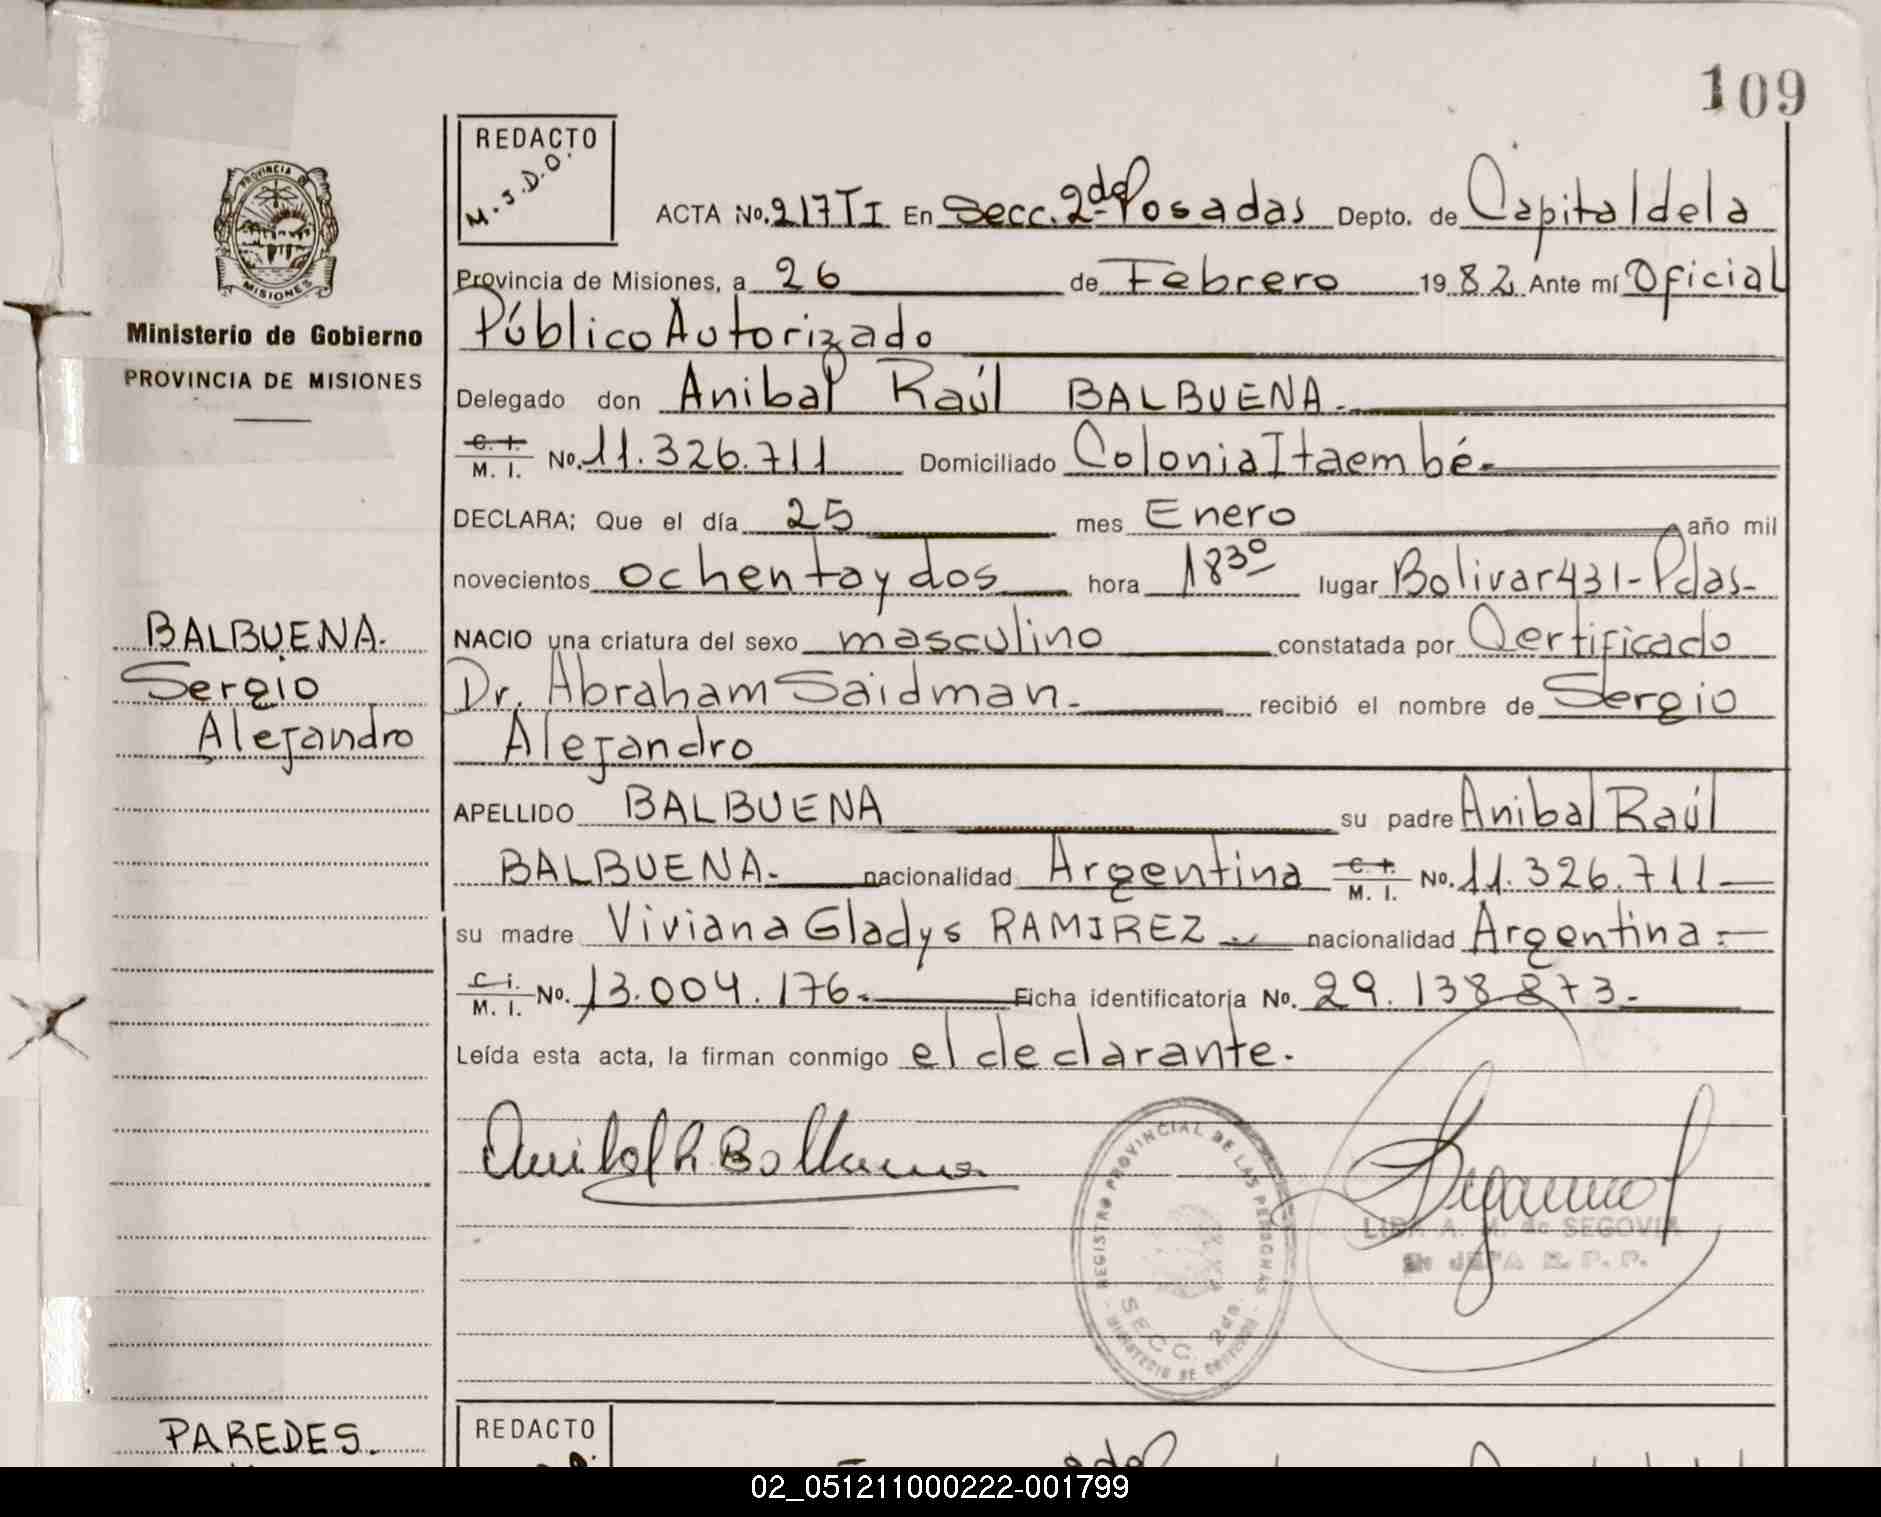 109
REDACTO
M.J.D.O.
ACTA No. 217 TI En Secc. 2da Posadas Depto. de Capital de la
PROVINCIA DE
MISIONES
Provincia de Misiones, a 26 de Febrero 1982 Ante mí Oficial
Ministerio de Gobierno
PROVINCIA DE MISIONES
Público Autorizado
Delegado don Anibal Raúl BALBUENA.-
C. I. M. I. No. 11.326.711 Domiciliado Colonia Itaembé-
DECLARA; Que el día 25 mes Enero año mil
novecientos ochenta y dos hora 18 30 lugar Bolivar 431-Pdas-
BALBUENA.
Sergio
Alejandro
NACIO una criatura del sexo masculino constatada por Certificado
Dr. Abraham Saidman.- recibió el nombre de Sergio
Alejandro
APELLIDO BALBUENA su padre Anibal Raúl
BALBUENA.- nacionalidad Argentina C. I. M. I. No. 11.326.711-
su madre Viviana Gladys RAMIREZ nacionalidad Argentina.-
C. I. M. I. No. 13.004.176.- Ficha identificatoria No. 29.138.873-
Leída esta acta, la firman conmigo el declarante.
Anibal R Balbuena
REGISTRO PROVINCIAL DE LAS PERSONAS
SECC. 2da.
MINISTERIO DE GOBIERNO
A. M. de SEGOVIA
JEFA R. P. P.
PAREDES.
REDACTO
02_051211000222-001799